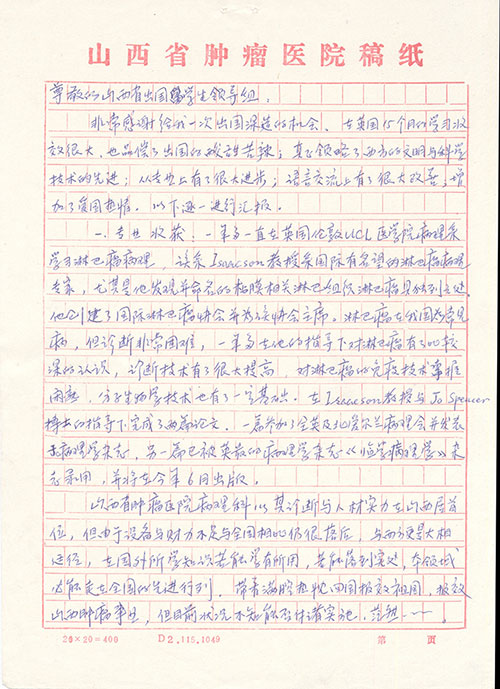 山西省肿瘤医院稿纸
尊敬的山西省出国留学生领导组：
非常感谢给我一次出国深造的机会。在英国15个月的学习收
效很大，也品偿了出国的酸甜苦辣；真正领略了西方的文明与科学
技术的先进；从专业上有了很大进步；语言交流上有了很大改善；增
加了爱国热情。以下逐一进行汇报。
一、专业收获：一年多一直在英国伦敦UCL医学院病理系
学习淋巴瘤病理，该系Isaacson教授是国际有名望的淋巴瘤病理
专家，尤其是他发现并命名的粘膜相关淋巴组织淋巴瘤
他创建了国际淋巴瘤协会并为该协会主席。淋巴瘤在我国为常见
病，但诊断非常困难，一年多在他的指导下对淋巴瘤有了比较
深的认识，诊断技术有了很大提高，对淋巴瘤的免疫技术掌握
闲熟，分子生物学技术也有了一定基础。在Isaacson教授与Jo Spencer
博士的指导下完成了两篇论文，一篇参加了全英及北爱尔兰病理会并发表
在病理学杂志，另一篇已被英国的病理学杂志《临学病理学》杂
志录用，并将在今年6月出版。
山西省肿瘤医院病理科以其诊断与人材实力在山西居首
位，但由于设备与财力不足与全国相比仍很落后，与西方更是大相
径廷，在国外所学知识若能学有所用，若能落到实处，本领域
必能走在全国的先进行列。带着满腔热忱回国报效祖国，报效
山西肿瘤事业，但目前状况不知能否付诸实施。范
20×20=400 D2.115.1049 第 页